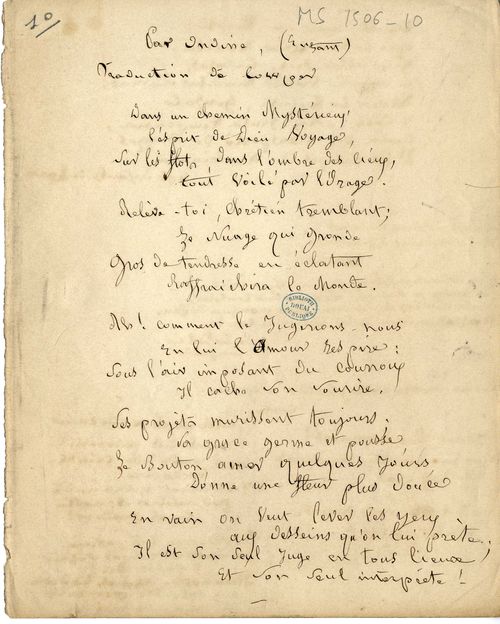 10
MS 1506-10
Par Ondine, (Enfant)
Traduction de Cowper
Dans un chemin Mystérieux
l'esprit de Dieu Voyage,
Sur les flots, dans l'ombre des cieux,
tout Voilé par l'Orage.
Relève-toi, Chrétien tremblant;
Le Nuage qui gronde
Gros de tendresse en éclatant
Raffraichira le Monde.
BIBLIOTH
DOUAI
PUBLIQUE
Ah! comment le Jugerions-nous
En lui l'Amour respire:
Sous l'air imposant du courroux
Il cache son sourire.
Ses projets murissent toujours.
Sa grace germe et pousse
Le Bouton amer quelques Jours
Donne une fleur plus douce
En vain on veut lever les yeux
aux desseins qu'on lui prête,
Il est son seul Juge en tous lieux
Et son seul interprète!